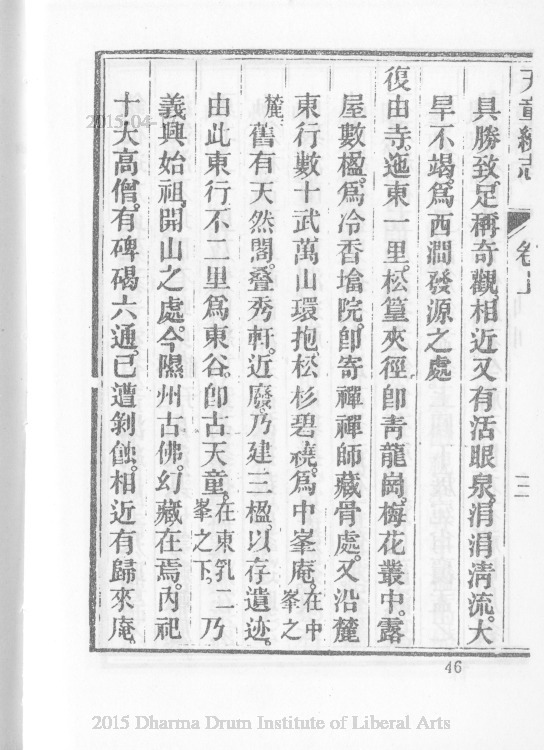 天童續志
卷上
三
具勝致足稱奇觀相近又有活眼泉涓涓淸流大
旱不竭爲西澗發源之處
復由寺迤東一里松篁夾徑卽靑龍崗梅花叢中露
屋數楹爲冷香墖院卽寄禪禪師藏骨處又沿麓
東行數十武萬山環抱松杉碧繞爲中峯庵在中峯之
麓舊有天然閣疊秀軒近廢乃建三楹以存遺迹
由此東行不二里爲東谷卽古天童在東乳二峯之下乃
義興始祖開山之處今隰州古佛幻藏在焉內祀
十大高僧有碑碣六通已遭剝蝕相近有歸來庵
46
2015-04-
2015 Dharma Drum Institute of Liberal Arts